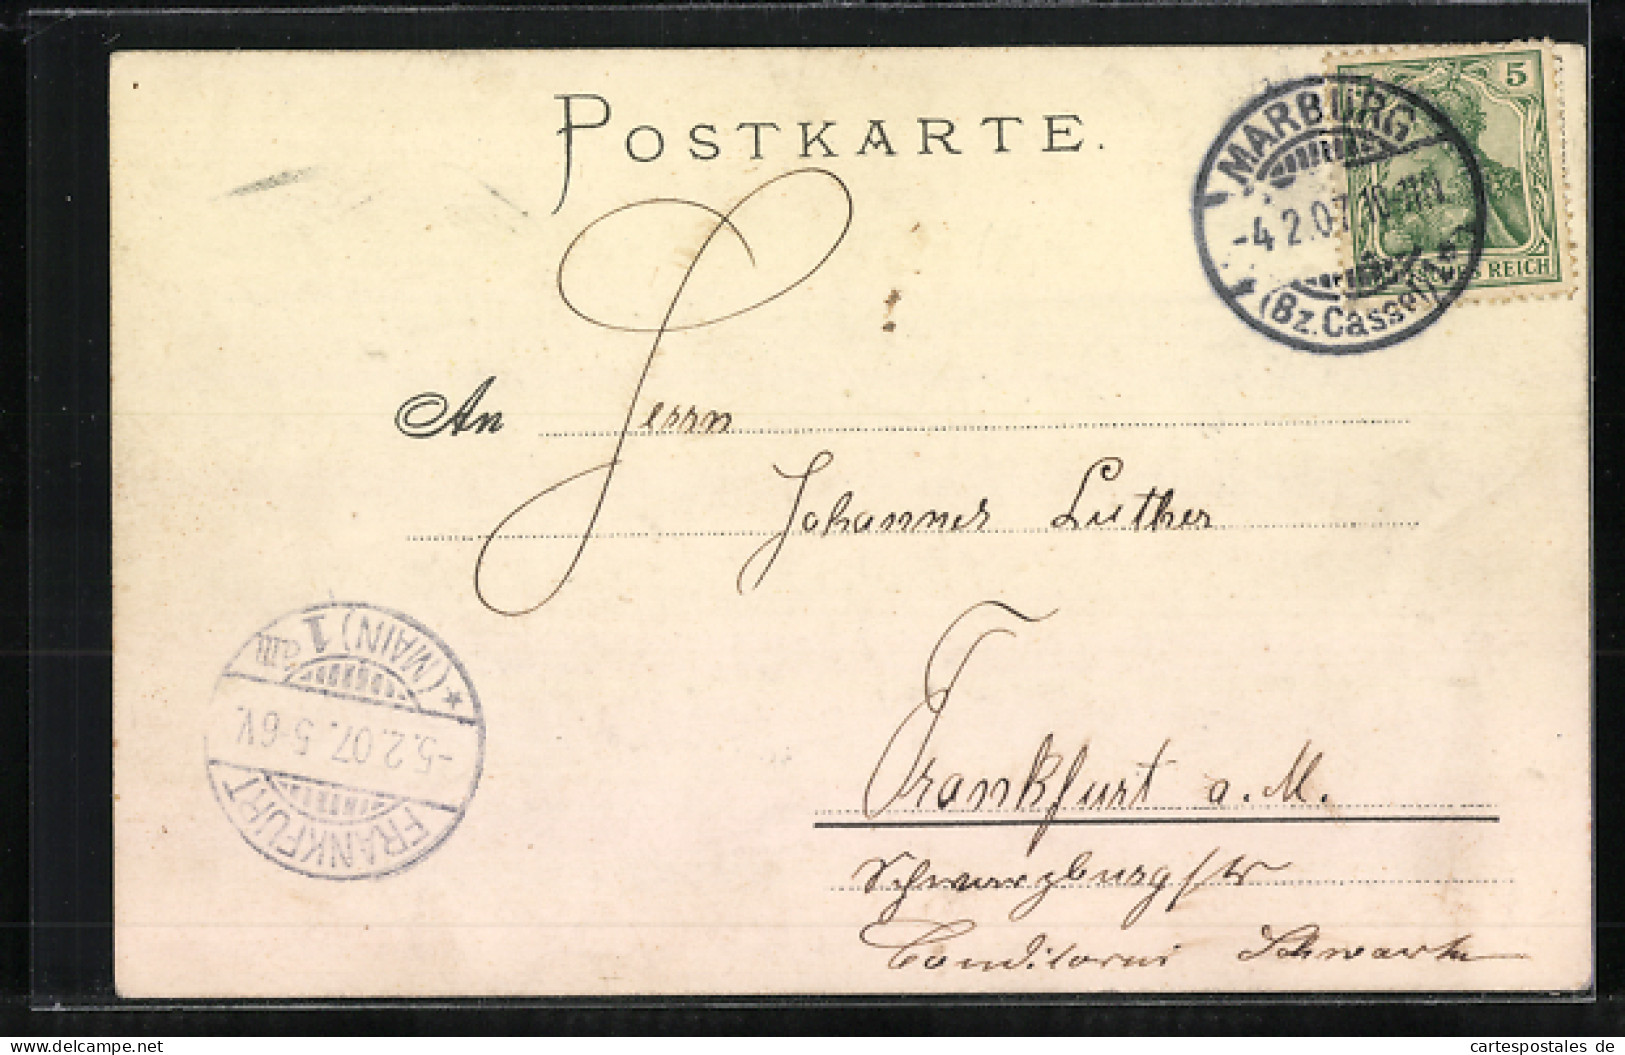 POSTKARTE.
5
REICH
MARBURG
-4.2.07.10-11N.
(Bz. Cassel)
An Herrn
Johannes Luther
Frankfurt a. M.
Schwarzburgstr
Conditorei
FRANKFURT
-5.2.07. 5-6V.
(MAIN) 1
cartespostales de